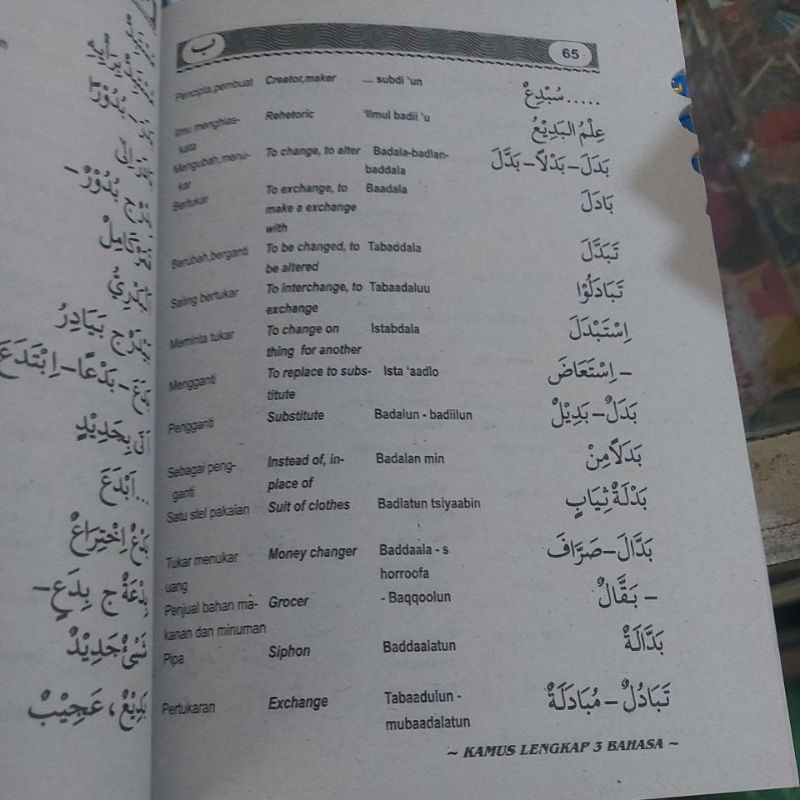 ب 65
Pencipta,pembuat Creator,maker .... subdi 'un .....سُبْدِعٌ
Ilmu menghias- Rehetoric 'Ilmul badii 'u عِلْمُ البَدِيْعُ
kata
Mengubah,menu- To change, to alter Badala-badlan- بَدَلَ – بَدْلاً – بَدَّلَ
kar baddala
Bertukar To exchange, to Baadala بَادَلَ
make a exchange
with
Berubah,berganti To be changed, to Tabaddala تَبَدَّلَ
be altered
Saling bertukar To interchange, to Tabaadaluu تَبَادَلُوْا
exchange
Meminta tukar To change on Istabdala اِسْتَبْدَلَ
thing for another
Mengganti To replace to subs- Ista 'aadlo – اِسْتَعَاضَ
titute
Pengganti Substitute Badalun - badiilun بَدَلٌ – بَدِيْلٌ
Sebagai peng- Instead of, in- Badalan min بَدَلاً مِنْ
ganti place of
Satu stel pakaian Suit of clothes Badlatun tsiyaabin بَدْلَةٌ ثِيَابٍ
Tukar menukar Money changer Baddaala - s بَدَّالَ – صَرَّافَ
uang horroofa
Penjual bahan ma- Grocer - Baqqoolun – بَقَّالٌ
kanan dan minuman
Pipa Siphon Baddaalatun بَدَّالَةٌ
Pertukaran Exchange Tabaadulun - تَبَادُلٌ – مُبَادَلَةٌ
mubaadalatun
~ KAMUS LENGKAP 3 BAHASA ~
بُدُوْرٌ
بُدُوْرٌ –
بَيَادِرُ
بَدَعَ – بَدْعًا – اِبْتَدَعَ
اَتَى بِجَدِيْدٍ
...اَبْدَعَ
بَدْعٌ اِخْتِرَاعٌ
بِدْعَةٌ ج بِدَعٍ –
شَيْءٌ جَدِيْدٌ
بَدِيْعٌ، عَجِيْبٌ